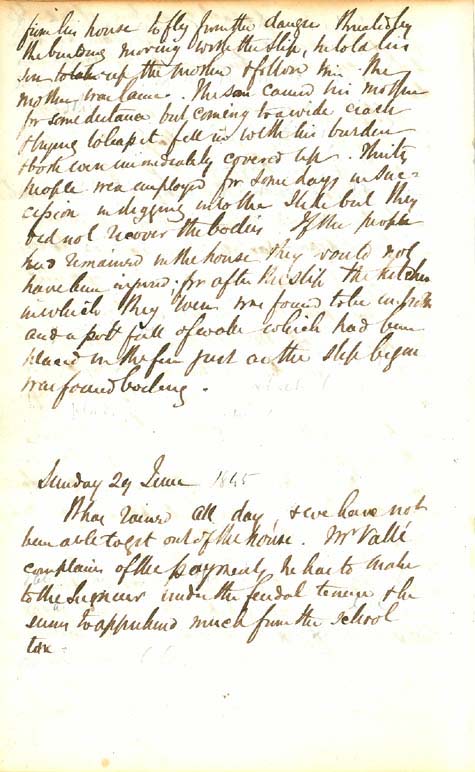 from his house to fly from the danger threatened by
the building moving with the slip, he told his
son to take up the mother & follow him. The
mother was lame. The son carried his mother
for some distance but coming to a wide crack
& trying to leap it fell in with his burden
& both were immediately covered up. Thirty
people were employed for some days in suc-
cession in digging into the slide but they
did not recover the bodies. If the people
had remained in the house they would not
have been injured, for after the slip the kitchen
in which they were was found to be
and a pot full of water which had been
placed on the fire just as the slip began
was found boiling.
Sunday 29 June 1845
It has rained all day & we have not
been able to get out of the house. Mr Vallé
complains of the payments he has to make
to the Seigneur under the feudal tenure & he
seems to apprehend much from the school
tax